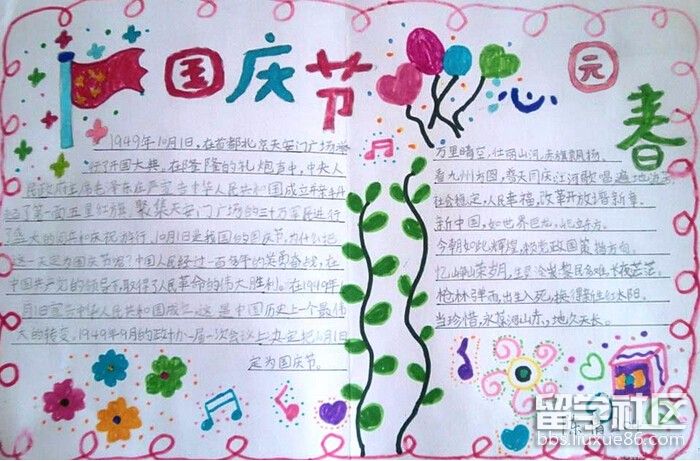 国庆节
心园春
1949年10月1日,在首都北京天安门广场举
行了开国大典。在隆隆的礼炮声中,中央人
民政府主席毛泽东庄严宣告中华人民共和国成立并升
起了第一面五星红旗。聚集天安门广场的三十万军民进行
了盛大的阅兵和庆祝游行。10月1日是我国的国庆节,为什么把
这一天定为国庆节呢?中国人民经过一百多年的英勇奋战,在
中国共产党的领导下,取得了人民革命的伟大胜利。在1949年
月1日宣告中华人民共和国成立。这是中国历史上一个最伟
大的转变。1949年9月的政协一届一次会议上决定把10月1日
定为国庆节。
万里晴空,壮丽山河,赤旗飘扬。
看九州方圆,普天同庆;江河歌唱,遍地
社会稳定,人民幸福,改革开放谱新章。
新中国,如世界巨龙,屹立东方。
今朝如此辉煌,赖党政国策指方向。
忆
枪林弹雨,出生入死,换得新生红太阳。
当珍惜,永葆河山赤,地久天长。
留学社区
bbs.liuxue86.com